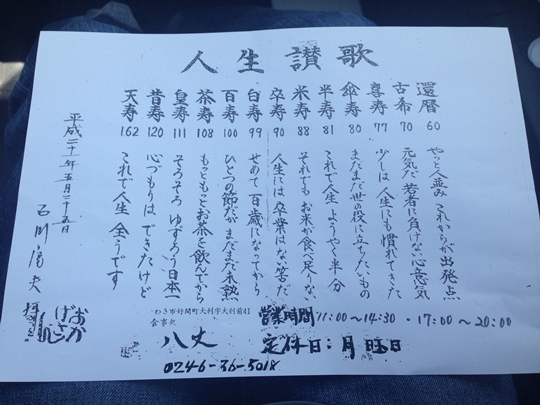 人生讃歌
還暦 60 やっと人並み これからが出発点
古希 70 元気だ 若者に負けない心意気
喜寿 77 少しは 人生にも慣れてきた
傘寿 80 まだまだ世の役に立ちたいもの
半寿 81 これで人生 ようやく半分
米寿 88 それでも お米が食べ足りな
卒寿 90 人生には 卒業はない筈だ
白寿 99 せめて 百歳になってから
百寿 100 ひとつの節だが まだまだ未熟
茶寿 108 もっともっとお茶を飲んでから
皇寿 111 そろそろ ゆずろうか 日本一
昔寿 120 心づもりは できたけど
天寿 162 これで人生 全うです
平成二十一年五月二十五日
石川
わき市好間町大利字大利前41
食事処
八丈
0246-36-5018
営業時間 11:00〜14:30・17:00〜20:00
定休日:月曜日